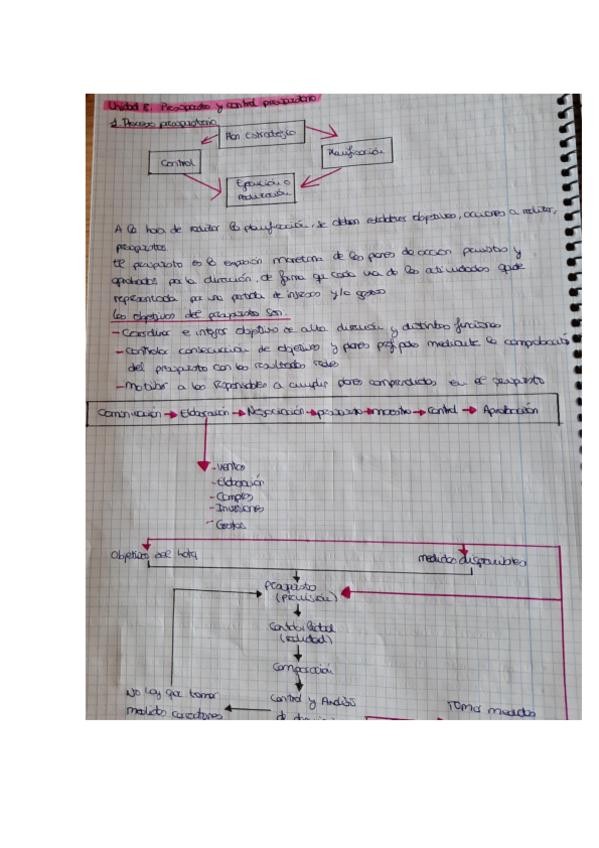 Unidad 8: Presupuesto y control presupuestario
1. Proceso presupuestario
Plan Estratégico
Control
Planificación
Ejecución o
A la hora de realizar la planificación, se deben establecer objetivos, acciones a realizar,
presupuestos.
El presupuesto es la expresión monetaria de los planes de acción previstos y
aprobados por la dirección, de forma que cada una de las actividades quede
representada por una partida de ingresos y/o gastos
Los objetivos del presupuesto son:
- Coordinar e integrar objetivos de alta dirección y distintas funciones
- Controlar consecución de objetivos y planes mediante la comprobación
del presupuesto con los resultados reales
- Motivar a los responsables a cumplir planes comprendidos en el presupuesto
Comunicación → Elaboración → Negociación → presupuesto → maestro → control → Aprobación
- Ventas
- Elaboración
- Compras
- Inversiones
- Gastos
Objetivos del
medidas disponibles
Presupuesto
(previsión)
Contabilidad
(realidad)
Comparación
No hay que tomar
Control y Análisis
Tomar medidas
medidas correctoras